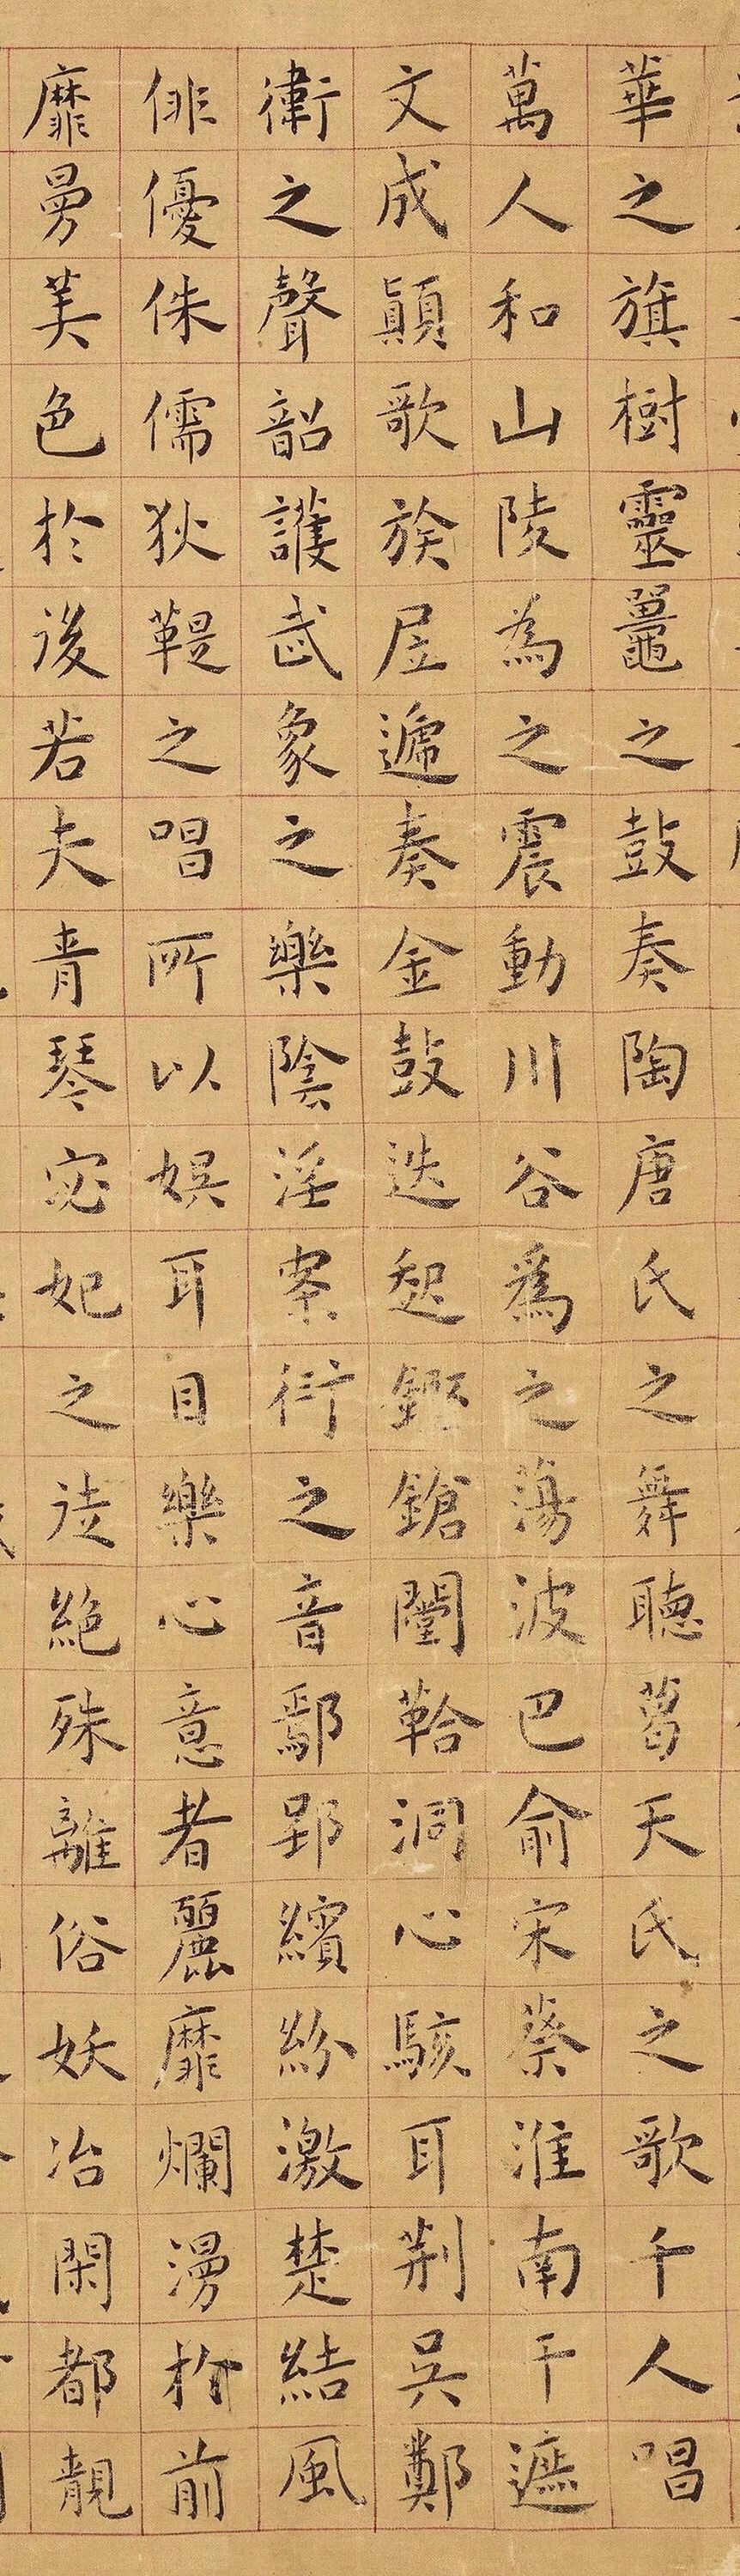 華之旗樹靈鼉之鼓奏陶唐氏之舞聽葛天氏之歌千人唱
萬人和山陵為之震動川谷爲之蕩波巴俞宋蔡淮南干遮
文成顛歌族居遞奏金鼓迭起鏗鎗闛鞈洞心駭耳荆吳鄭
衛之聲韶護武象之樂陰淫案衍之音鄢郢繽紛激楚結風
俳優侏儒狄鞮之唱所以娛耳目樂心意者麗靡爛漫於前
靡曼美色於後若夫青琴宓妃之徒絶殊離俗妖冶閑都靚